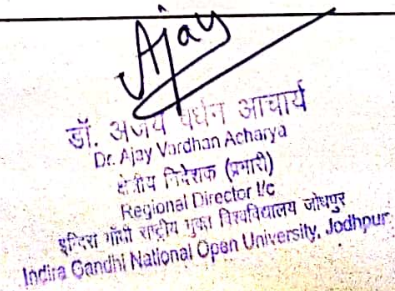 Ajay
डॉ. अजय वर्धन आचार्य
Dr. Ajay Vardhan Acharya
क्षेत्रीय निदेशक (प्रभारी)
Regional Director I/c
इन्दिरा गाँधी राष्ट्रीय मुक्त विश्वविद्यालय जोधपुर
Indira Gandhi National Open University, Jodhpur